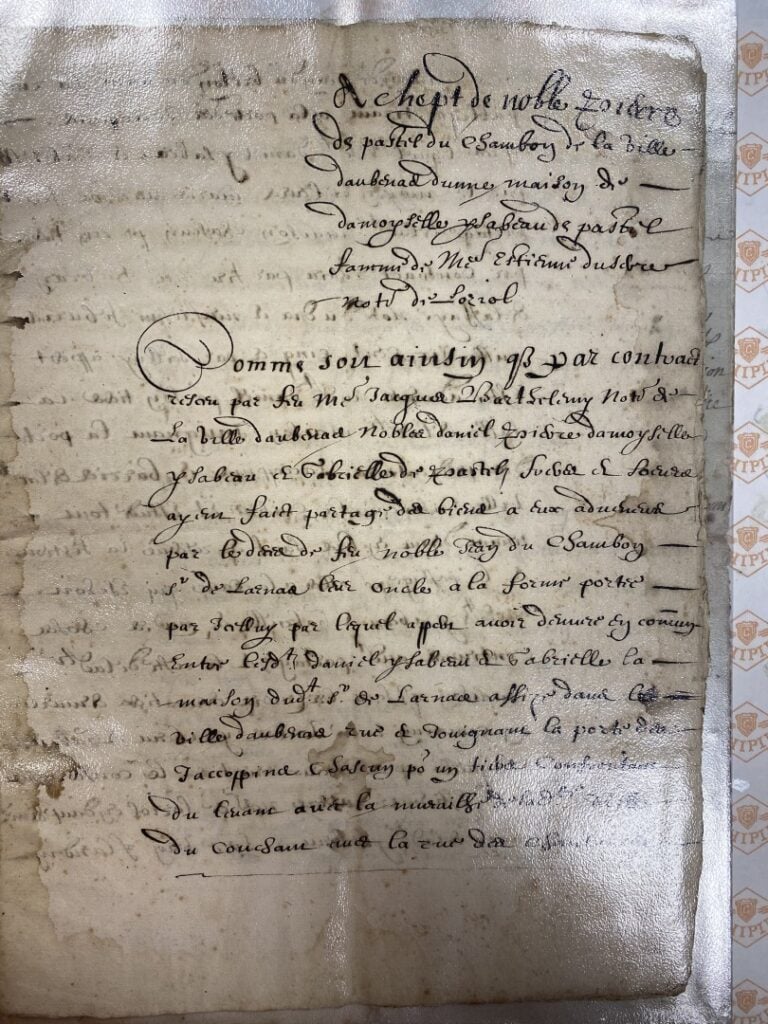 Achept de noble pierre
de pastel du Chambon de la ville
daubenas dunne maison de
damoyselle ysabeau de pastel
famme de Me Estienne duserre
note de Loriol
Comme soit ainsin q par contract
receu par feu Me Jacques Barthelemy Note de
La ville daubenas Nobles daniel pierre damoyselle
ysabeau et Gabrielle de pastel freres et soeurs
ayent faict partage des biens a eux advenus
par le deces de feu noble Jean du Chambon
sr de Larnas leur oncle a la forme portee
par Icelluy par lequel appert avoir demure en commun
Entre lesdt daniel ysabeau et Gabrielle la
maison dudt sr de Larnas assize dans la
ville daubenas rue et Joignant la porte des
Jaccoppins Chascun po un tiers Confrontant
du levant avec la muraille de lad
du couchant avec la rue des